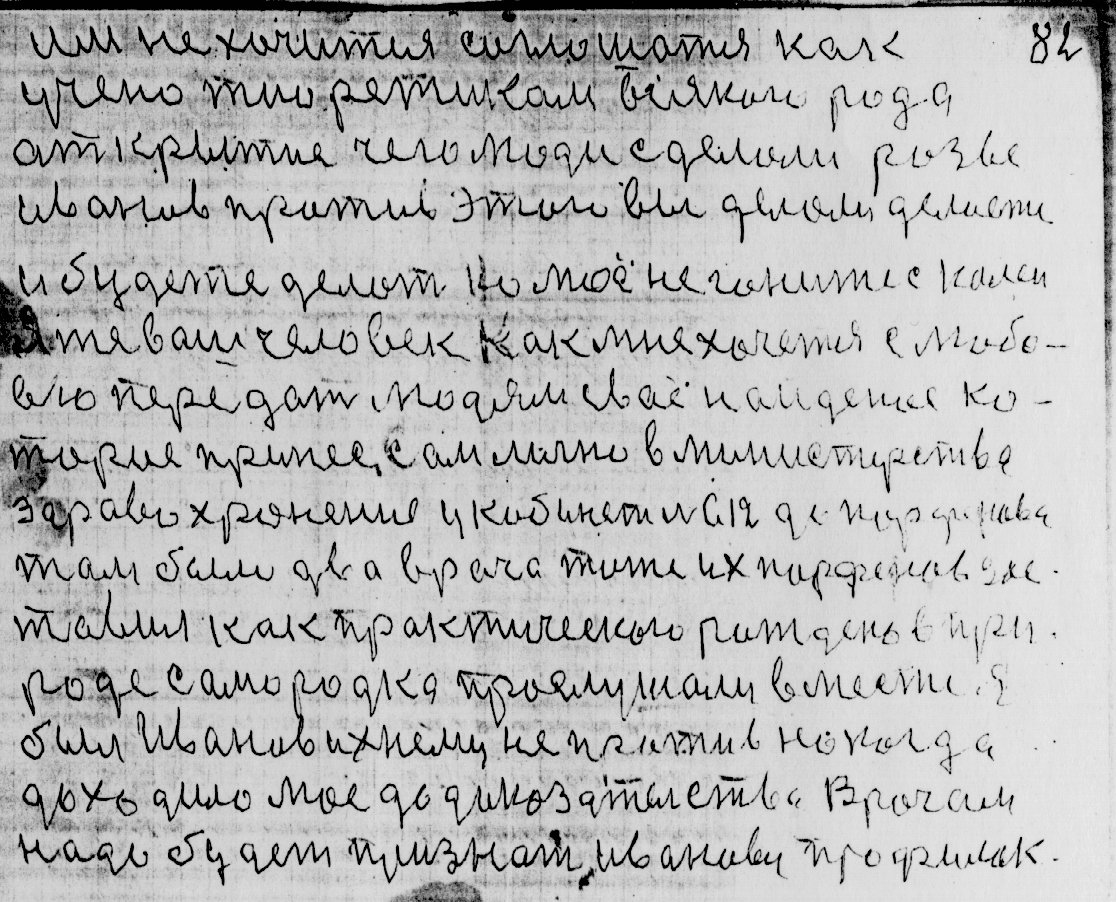 им не хочится соглошатся как 82
учено тиоретикам всякого рода
аткрытие чего люди сделоли розве
иванов против этого вы делоли делаете
и будете делот но моё не гоните с колеи
Я те ваш человек Как мне хочется с любо-
вю передат людям сваё наидение ко-
торое принес сам лично в министерства
здравохронение у кобинети № 612 до порфенова
там были два врача тоже их порфенов зас-
тавил как практического рождено в при
роде самородка прослушали вместе Я
был Иванов их нему не против но когда
доходило мое до докозателства Врочам
надо будет признат иванову профилак-